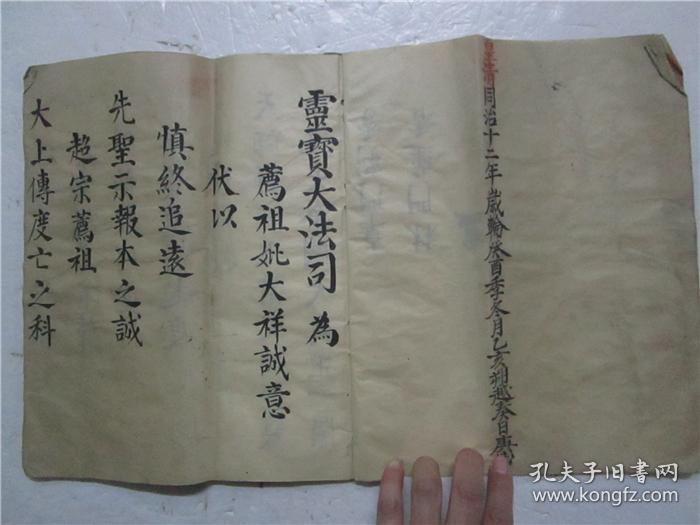 皇清同治十二年歲輪癸酉季冬月乙亥朔越葵日
靈寶大法司 為
薦祖妣大祥誠意
伏以
慎終追遠
先聖示報本之誠
超宗薦祖
大上傳度亡之科
孔夫子旧书网
www.kongfz.com